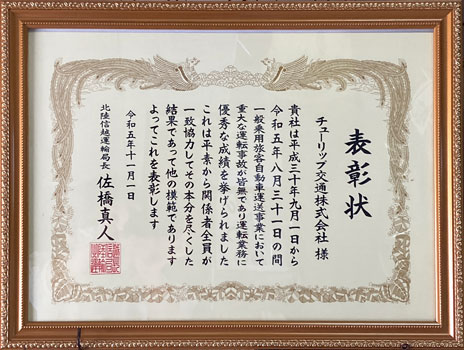 表彰状
チューリップ交通株式会社 様
貴社は平成三十年九月一日から
令和五年八月三十一日の間
一般乗用旅客自動車運送事業において
重大な運転事故が皆無であり運転業務に
優秀な成績を挙げられました
これは平素から関係者全員が
一致協力してその本分を尽くした
結果であって他の模範であります
よってこれを表彰します
令和五年十一月一日
北陸信越運輸局長 佐橋真人